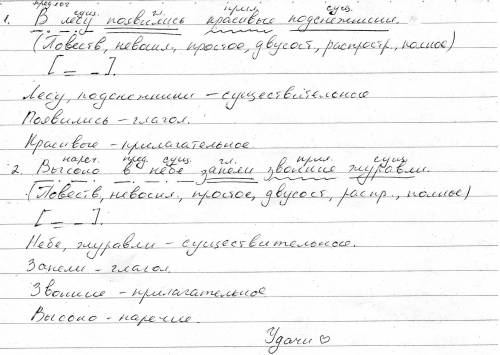 предлог сущ. гл. прил. сущ.
1. В лесу появились красивые подснежники.
(Повеств, невоскл, простое, двусост, распростр, полное)
[= -].
Лесу, подснежники – существительное
Появились – глагол.
Красивые – прилагательное.
нареч. пред. сущ. гл. прил. сущ.
2. Высоко в небе запели звонкие журавли.
(Повеств, невоскл, простое, двусост, распр., полное)
[= -].
Небе, журавли – существительное.
Запели – глагол.
Звонкие – прилагательное
Высоко – наречие.
Удачи ♡